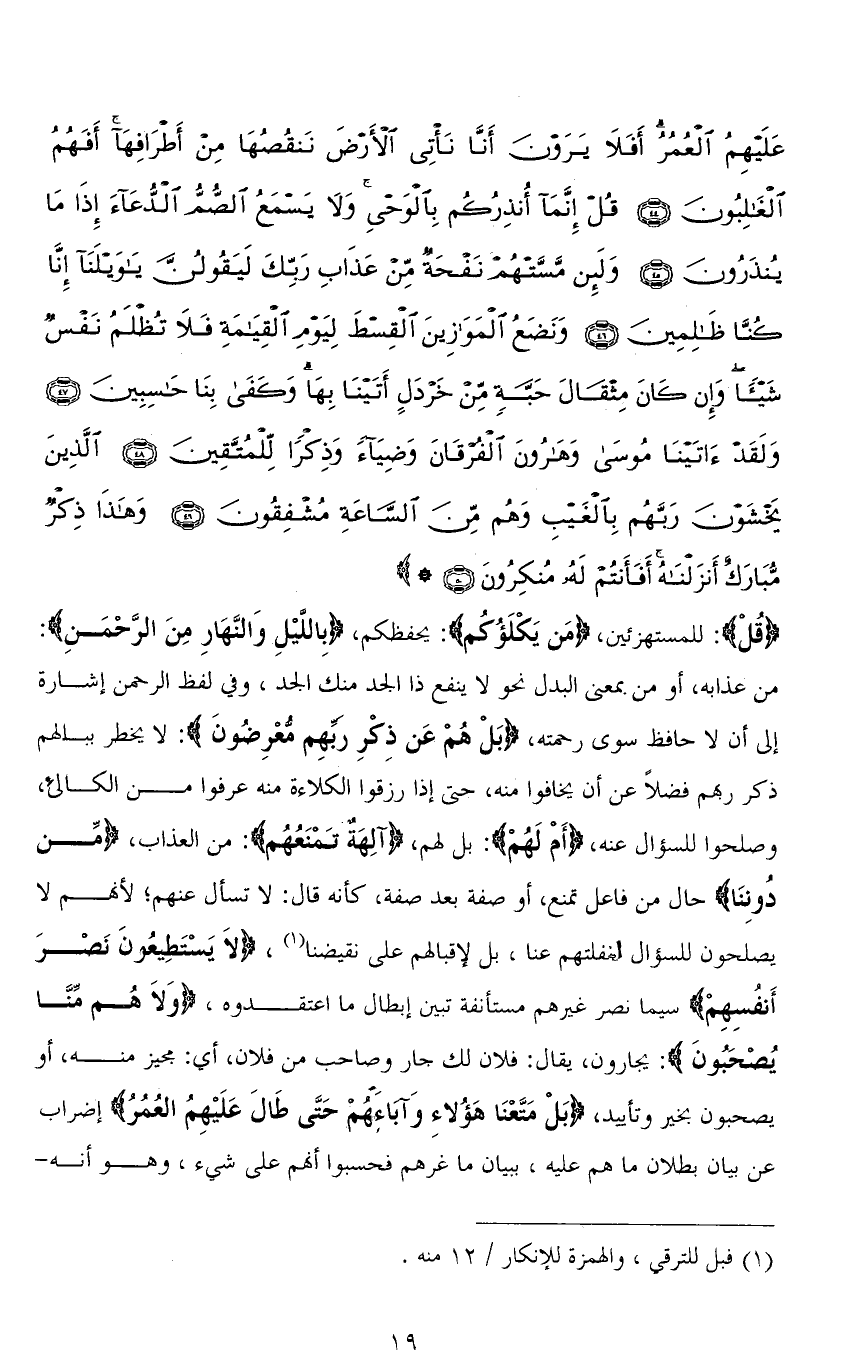 عَلَيْهِمُ ٱلْعُمُرُ ۗ أَفَلَا يَرَوْنَ أَنَّا نَأْتِى ٱلْأَرْضَ نَنقُصُهَا مِنْ أَطْرَافِهَآ ۚ أَفَهُمُ
ٱلْغَـٰلِبُونَ ٤٤ قُلْ إِنَّمَآ أُنذِرُكُم بِٱلْوَحْىِ ۚ وَلَا يَسْمَعُ ٱلصُّمُّ ٱلدُّعَآءَ إِذَا مَا
يُنذَرُونَ ٤٥ وَلَئِن مَّسَّتْهُمْ نَفْحَةٌ مِّنْ عَذَابِ رَبِّكَ لَيَقُولُنَّ يَـٰوَيْلَنَآ إِنَّا
كُنَّا ظَـٰلِمِينَ ٤٦ وَنَضَعُ ٱلْمَوَٰزِينَ ٱلْقِسْطَ لِيَوْمِ ٱلْقِيَـٰمَةِ فَلَا تُظْلَمُ نَفْسٌ
شَيْـًٔا ۖ وَإِن كَانَ مِثْقَالَ حَبَّةٍ مِّنْ خَرْدَلٍ أَتَيْنَا بِهَا ۗ وَكَفَىٰ بِنَا حَـٰسِبِينَ ٤٧
وَلَقَدْ ءَاتَيْنَا مُوسَىٰ وَهَـٰرُونَ ٱلْفُرْقَانَ وَضِيَآءً وَذِكْرًا لِّلْمُتَّقِينَ ٤٨ ٱلَّذِينَ
يَخْشَوْنَ رَبَّهُم بِٱلْغَيْبِ وَهُم مِّنَ ٱلسَّاعَةِ مُشْفِقُونَ ٤٩ وَهَـٰذَا ذِكْرٌ
مُّبَارَكٌ أَنزَلْنَـٰهُ ۚ أَفَأَنتُمْ لَهُۥ مُنكِرُونَ ٥٠ * ﴾
﴿قُلْ﴾: للمستهزئين، ﴿مَن يَكْلَؤُكُم﴾: يحفظكم، ﴿بِاللَّيْلِ وَالنَّهَارِ مِنَ الرَّحْمَـنِ﴾:
من عذابه، أو من بمعنى البدل نحو لا ينفع ذا الجد منك الجد ، وفي لفظ الرحمن إشارة
إلى أن لا حافظ سوى رحمته، ﴿بَلْ هُمْ عَن ذِكْرِ رَبِّهِم مُّعْرِضُونَ ﴾: لا يخطر ببالهم
ذكر ربهم فضلاً عن أن يخافوا منه، حتى إذا رزقوا الكلاءة منه عرفوا من الكالئ،
وصلحوا للسؤال عنه، ﴿أَمْ لَهُمْ﴾: بل لهم، ﴿آلِهَةٌ تَمْنَعُهُم﴾: من العذاب، ﴿مِّن
دُونِنَا﴾ حال من فاعل تمنع، أو صفة بعد صفة، كأنه قال: لا تسأل عنهم؛ لأنهم لا
يصلحون للسؤال لغفلتهم عنا ، بل لإقبالهم على نقيضنا(١) ، ﴿لاَ يَسْتَطِيعُونَ نَصْرَ
أَنفُسِهِمْ﴾ سيما نصر غيرهم مستأنفة تبين إبطال ما اعتقدوه ، ﴿وَلاَ هُم مِّنَّا
يُصْحَبُونَ ﴾: يجارون، يقال: فلان لك جار وصاحب من فلان، أي: مجيز منه، أو
يصحبون بخير وتأييد، ﴿بَلْ مَتَّعْنَا هَؤُلاءِ وَآبَاءَهُمْ حَتَّى طَالَ عَلَيْهِمُ العُمُرُ﴾ إضراب
عن بيان بطلان ما هم عليه ، ببيان ما غرهم فحسبوا أنهم على شيء ، وهو أنه-
(١) فبل للترقي ، والهمزة للإنكار / ١٢ منه .
١٩